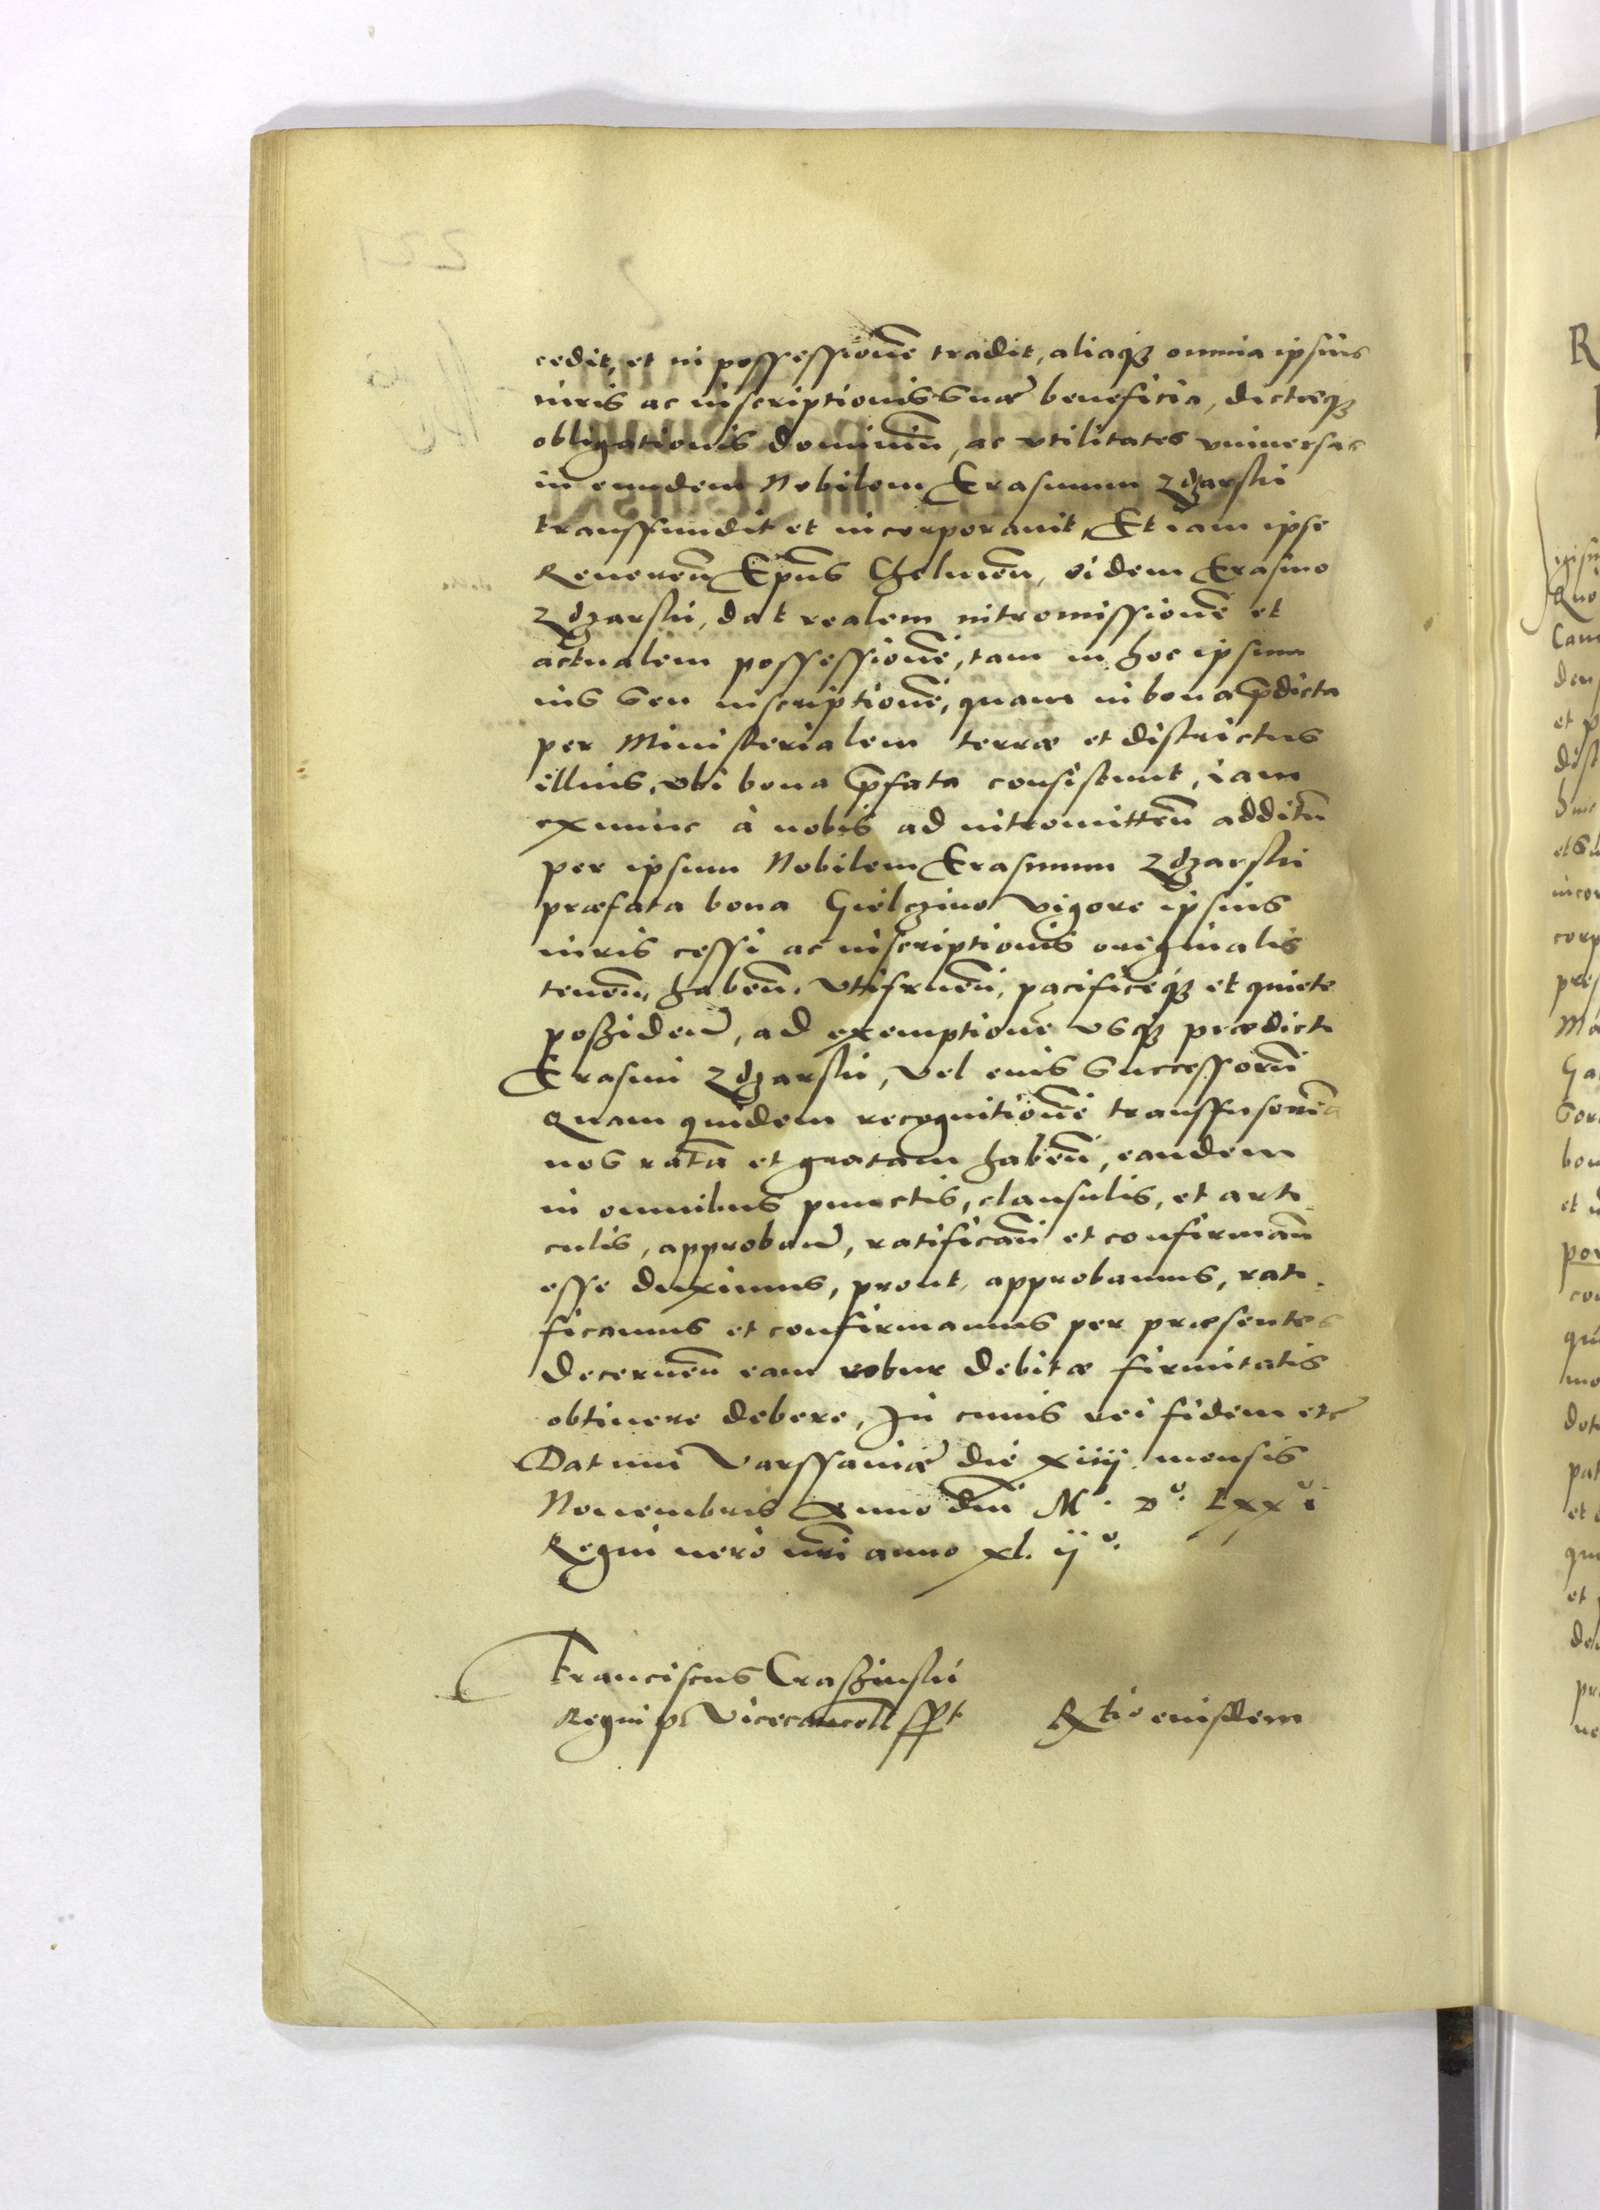 cedit, et in possessionē tradit, aliaqꝫ omnia ipsius
iuris ac inscriptionis suæ beneficia, dictæqꝫ
obligationis dominiū, ac vtilitates vniuersas
in eundem Nobilem Erasmum Zdzarskii
transfundit et incorporauit, Et iam ipse
Reuereñ Epūs Chelmeñ, eidem Erasmo
Zdzarskii, dat realem intromissionē et
actualem possessionē, tam in hoc ipsum
ius seu inscriptionē, quam in bona p̄dicta
per Ministerialem terræ et districtus
illius, vbi bona p̄fata consistunt, iam
exnunc à nobis ad intromitteñ additū
per ipsum Nobilem Erasmum Zdzarskii
præfata bona Gielczino vigore ipsius
iuris cessi ac inscriptionis originalis
teneñ, habeñ, vtifrueñ, pacificeqꝫ et quiete
poßideñ, ad exemptionē vsqꝫ prædicti
Erasmi Zdzarskii, vel eius successorū
Quam quidem recognitionē transfusoriā
nos ratā et gratam habeñ, eandem
in omnibus punctis, clausulis, et arti
culis, approbañ, ratificañ et confirmañ
esse duximus, prout approbamus, rati
ficamus et confirmamus per præsentes
decerneñ eam robur debitæ firmitatis
obtinere debere, In cuius rei fidem etc
Datum Varssauiæ die xiiii mensis
Nouembris Anno dm̄i Mº. Dº. Lxxºi
Regni vero nr̄i anno xl. ijº.
Franciscus Craßinskii
Regni pl Vicecancell sspt Rtio eiusdem